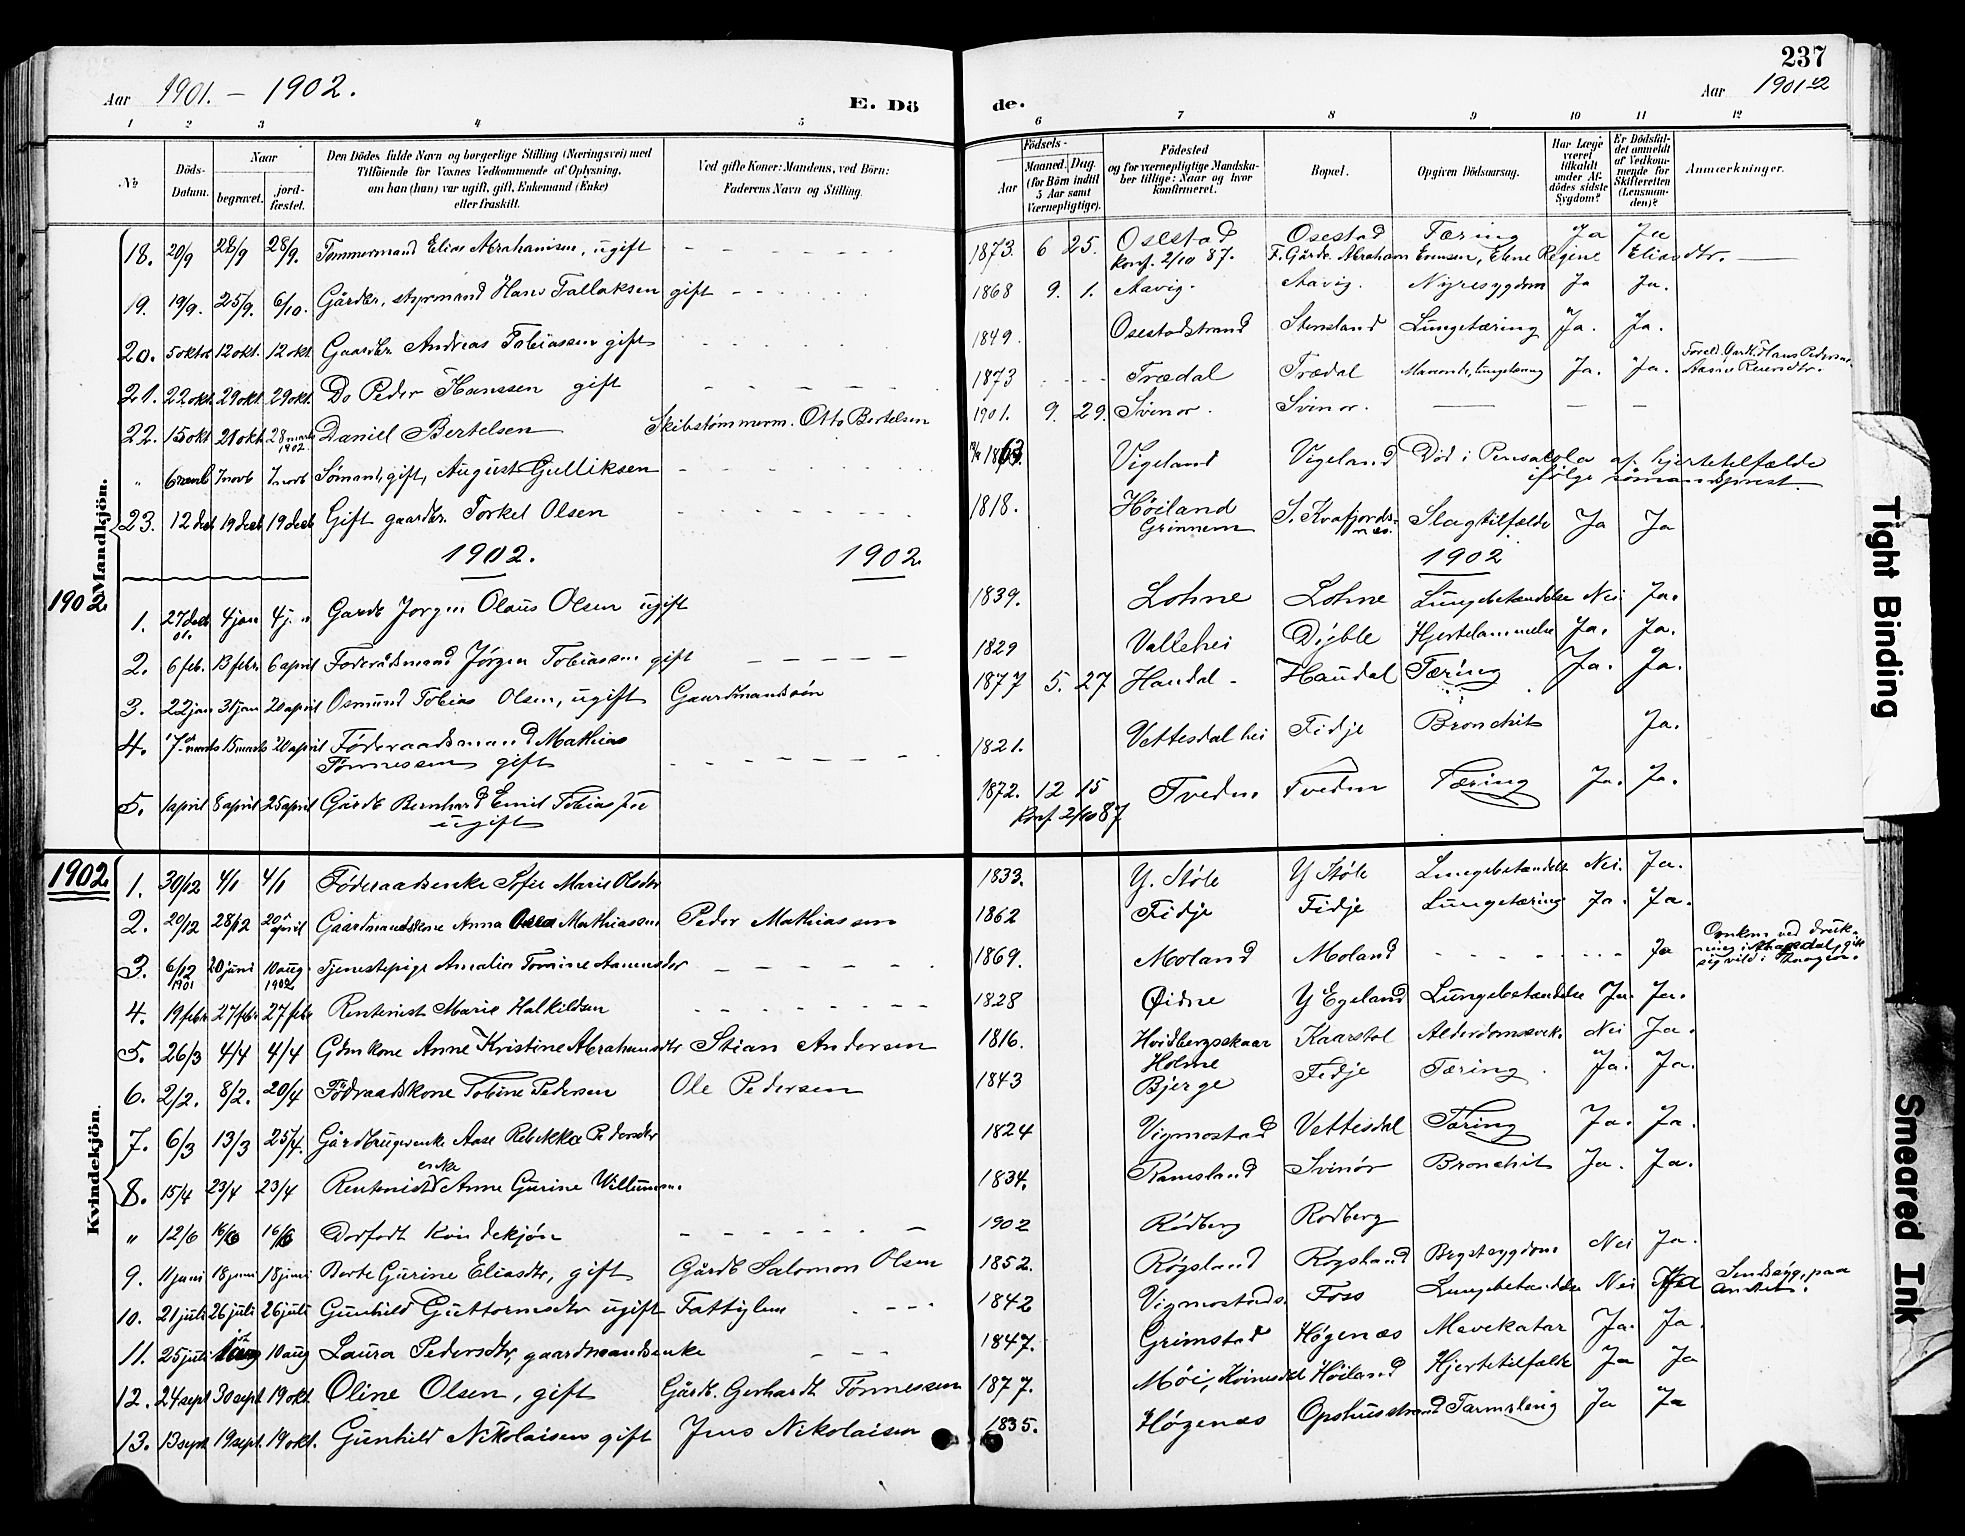 Aar 1901. - 1902.
E. Dö
de.
237
Aar 1901-2
1 2 3 4 5 6 7 8 9 10 11 12
No
Döds-Datum.
Naar
begravet.
jord-fæstet.
Den Dödes fulde Navn og borgerlige Stilling (Næringsvei) med
Tilföiende for Voxnes Vedkommende af Oplysning,
om han (hun) var ugift, gift, Enkemand (Enke)
eller fraskilt.
Ved gifte Koner: Mandens, ved Börn:
Faderens Navn og Stilling.
Födsels-
Aar
Maaned. Dag.
(for Börn indtil
5 Aar samt
Værnepligtige).
Födested
og for værnepligtige Mandska-
ber tillige: Naar og hvor
konfirmeret.
Bopæl.
Opgiven Dödsaarsag.
Har Læge
været
tilkaldt
under Af-
dödes sidste
Sygdom?
Er Dödsfal-
det anmeldt
af Vedkom-
mende for
Skifteretten
(Lensman-
den)?
Anmærkninger.
Mandkjön.
18. 20/9 28/9 28/9. Tømmermand Elias Abrahamsen, ugift 1873. 6 25. Osestad Osestad Tæring Ja Ja
Konf. 2/10 87. F. Gårdr. Abraham Evensen, Elene Regine Eliasdtr.
19. 19/9. 25/9. 6/10. Gårdbr, styrmand Hans Tallaksen gift 1868 9. 1. Aavig. Aavig. Nyresygdom Ja Ja.
20. 5 oktr 12 okt. 12 okt Gaardbr Andreas Tobiassen gift 1849. Osestadstrand Stensland Lungetæring Ja. Ja.
21. 22 okt. 29 okt. 29 okt. Do Peder Hanssen gift 1873 Trædal Trædal lungetæring Ja. Ja. Foreld. Gardb. Hans Pedersen
22. 15 okt 21 okt 28 marts 1902. Daniel Bertelsen Skibstømmerm. Otto Bertelsen 1901. 9. 29. Svinør. Svinør.
" 6 novb 7 novb 7 novb Sømand, gift, August Gulliksen Vigeland Vigeland Død i Pensacola af hjertetilfælde
ifølge sømandsprest.
23. 12 decb 19 decb 19 decb Gift gaardbr. Torkel Olsen 1818. Høiland S. Kvafjords- Slagtilfælde Ja Ja
Grinnem næs.
1902. 1902. 1902
1902.
1. 27 decb 01. 4 jan 4 j. Gardb Jørgen Olaus Olsen ugift 1839. Lohne Lohne Lungebetændelse Nei Ja.
2. 6 feb. 13 febr. 6 april Føderådsmand Jørgen Tobiassen gift 1829 Vallehei Dyble Hjertelammelse Ja. Ja.
3. 22 jan 31 jan 20 april Osmund Tobias Olsen, ugift Gaardmandssøn 1877 5. 27 Haudal - Haudal Tæring Ja. Ja.
4. 7 marts 15 marts 20 april Føderaadsmand Mathias 1821. Vettesdalhei Fidje Bronchit Ja.
Tønnessen gift
5. 1 april 8 april 25 april Gårdb Bernhard Emil Tobiassen 1872. 12 15 Tveden Tveden Tæring Ja. Ja.
ugift Konf. 2/10 87
1902
Kvindekjön.
1. 30/12 4/1 4/1 Føderaadsenke Sofie Marie Olsdtr 1833. Y. Støle Y Støle Lungebetændelse Nei Ja.
2. 20/12 28/12 20 april Gaardmandskone Anna Mathiassen Peder Mathiassen 1862 Fidje Fidje Lungetæring Ja. Ja.
3. 6/12 1901 20 juni 10 aug. 1902 Tjenestepige Amalie Tomine Aanensdtr 1869. Moland Moland Ja Omkom ved druk-
ning i gik
sig vild i skogen.
4. 19 febr 27 febr 27 febr Rentenist Marie Halkildsen 1828 Øidne Y Egeland Lungebetændelse Ja. Ja.
5. 26/3 4/4 4/4 Gdmkone Anne Kristine Abrahamsdtr Stian Andersen 1816. Hvidbergsskaar Kaarstøl Alderdomssvek. Nei Ja.
Holme
6. 2/2. 8/2. 20/4 Föderaadskone Tobine Pedersen Ole Pedersen 1843 Bjerge Fidje Tæring Ja. Ja.
7. 6/3 13/3 25/4. Gårdbrugerenke Aase Rebekka Pedersdtr 1824 Vigmostad Vettesdal Tæring Ja. Ja.
enke
8. 15/4 23/4 23/4 Rentenist Anne Gurine Willumsen. 1834. Ramsland Svinør Bronchit Ja. Ja.
" 12/6 16/6 16/6 Dødfødt Kvindekjøn 1902 Rödberg Rödberg
9. 11 juni 18 juni 18 juni Berte Gurine Eliasdtr, gift Gårdb Salomon Olsen 1852. Røysland Røysland Brystsygdom Nei Ja.
10. 21 juli 26 juli 26 juli Gunhild Guttormsdtr ugift Fattiglem 1842 Vigmostads. Foss Lungebetændelse Nei Ja Sindssyg, paa
11. 25 juli 10 aug Laura Pedersdtr, gaardmandsenke 1847. Grimstad Høgenæs Mavekatar Ja. Ja.
12. 24 sept 30 sept 19 okt. Oline Olsen, gift Gårdb. Gerhardt Tønnessen 1877. Møi, Kvinesdal Høiland Hjertetilfælde Ja Ja
13. 13 sept. 19 sept. 19 okt. Gunhild Nikolaisen gift Jens Nikolaisen 1835. Høgenæs Opshusstrand Tarmslyng Ja Ja
Tight Binding
Smeared Ink